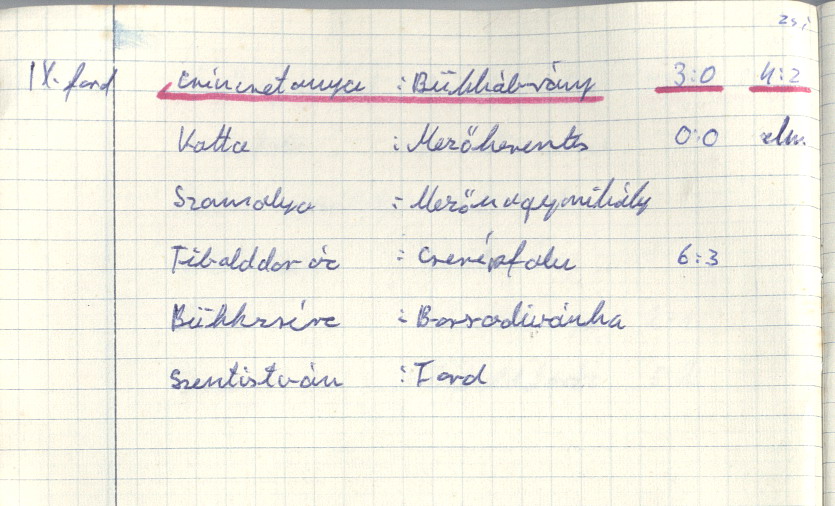 zsi
IX. ford Csincsetanya : Bükkábrány 3:0 4:2
Vatta : Mezőkeresztes 0:0 elm.
Szomolya : Mezőnagymihály
Tibolddaróc : Cserépfalu 6:3
Bükkzsérc : Borsodivánka
Szentistván : Tard